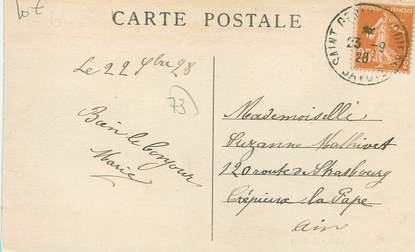 lot
CARTE POSTALE
SAINT
SAVOIE
23 -9
28
Le 22 7bre 28
73
Bien le bonjour
Marie
Mademoiselle
Suzanne Mathivet
120 route de Strasbourg
Crépieux la Pape
Ain